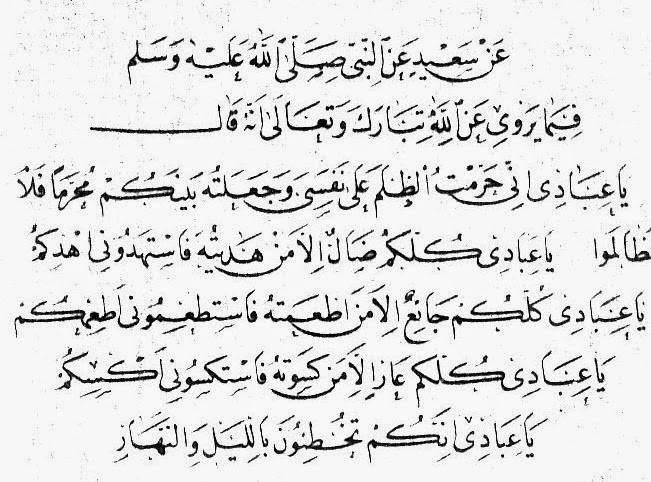 عَنْ سَعِيدٍ عَنِ النَّبِيِّ صَلَّى اللَّهُ عَلَيْهِ وَسَلَّم
فِيمَا يَرْوِي عَنِ اللَّهِ تَبَارَكَ وَتَعَالَى أَنَّهُ قَالَ
يَا عِبَادِي إِنِّي حَرَّمْتُ الظُّلْمَ عَلَى نَفْسِي وَجَعَلْتُهُ بَيْنَكُمْ مُحَرَّمًا فَلَا
تَظَالَمُوا يَا عِبَادِي كُلُّكُمْ ضَالٌّ إِلَّا مَنْ هَدَيْتُهُ فَاسْتَهْدُونِي أَهْدِكُمْ
يَا عِبَادِي كُلُّكُمْ جَائِعٌ إِلَّا مَنْ أَطْعَمْتُهُ فَاسْتَطْعِمُونِي أُطْعِمْكُمْ
يَا عِبَادِي كُلُّكُمْ عَارٍ إِلَّا مَنْ كَسَوْتُهُ فَاسْتَكْسُونِي أَكْسِكُمْ
يَا عِبَادِي إِنَّكُمْ تُخْطِئُونَ بِاللَّيْلِ وَالنَّهَارِ